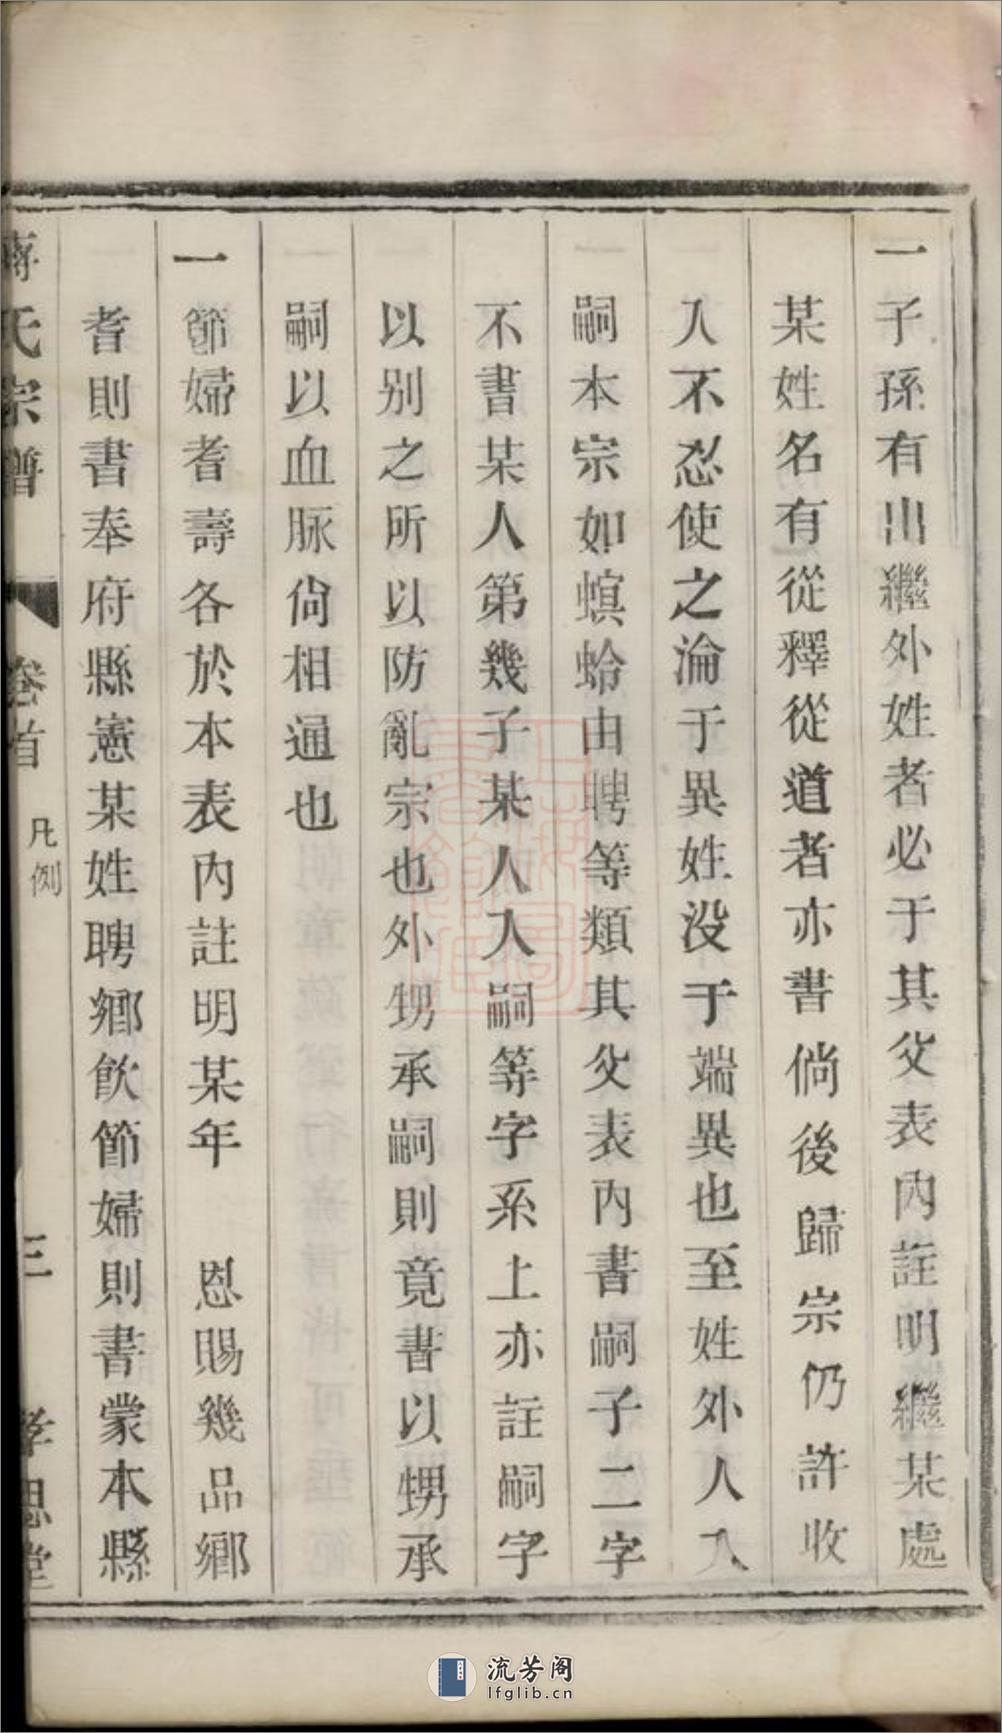 一子孫有出繼外姓者必于其父表內註明繼某處
某姓名有從釋從道者亦書倘後歸宗仍許收
入不忍使之淪于異姓没于端異也至姓外人入
嗣本宗如螟蛉由聘等類其父表內書嗣子二字
不書某人第幾子某人入嗣等字系上亦註嗣字
以别之所以防亂宗也外甥承嗣則竟書以甥承
嗣以血脉尙相通也
一節婦耆壽各於本表內註明某年 恩賜幾品鄉
耆則書奉府縣憲某姓聘鄉飲節婦則書蒙本縣
蔣氏宗譜 卷首 凡例 三 孝思堂
流芳阁
lfglib.cn